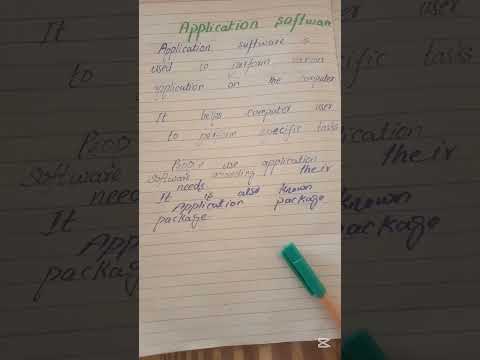 Application Softwar
Application software is
used to perform various
application on the computer
It helps computer user
to perform specific tasks
use application
Software according their
needs
It is also known
Application package
package